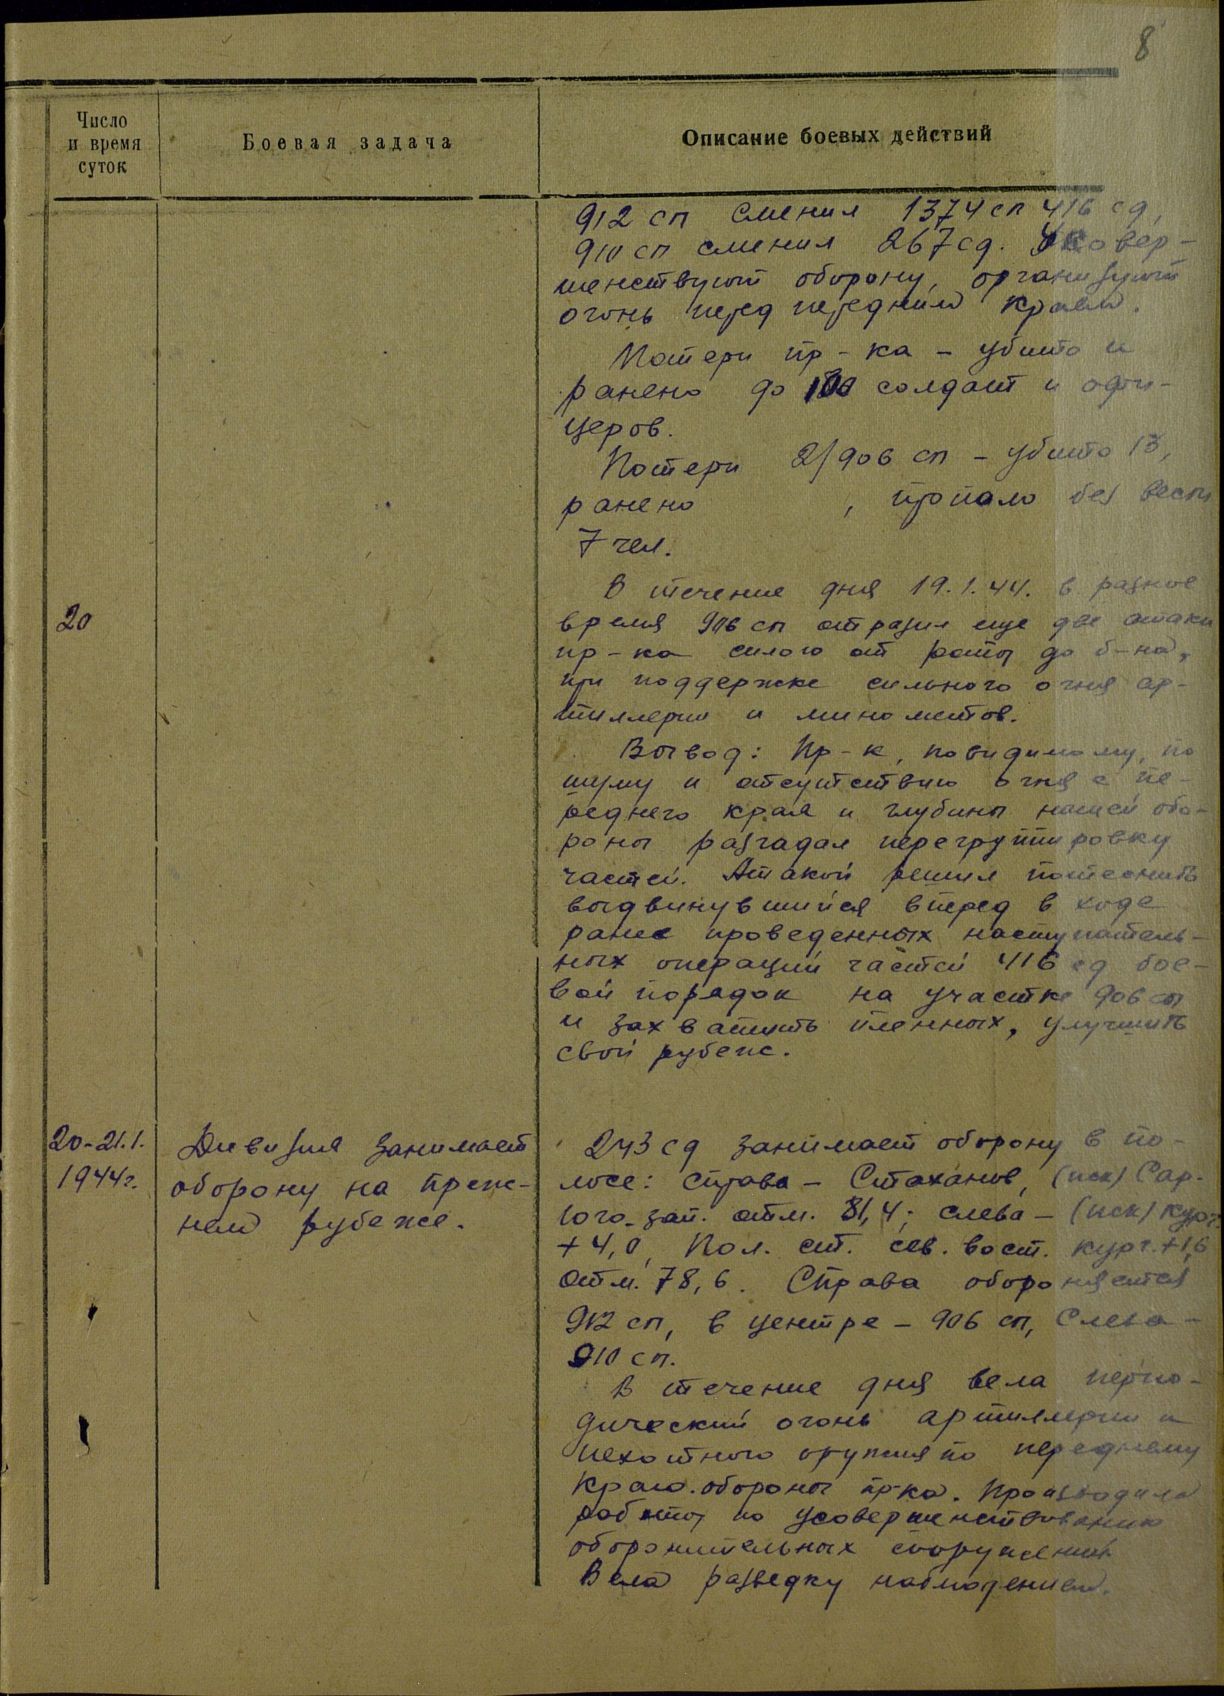 8
Число
и время
суток
Боевая задача
Описание боевых действий
912 сп сменил 1374 сп 416 сд,
910 сп сменил 267 сд. Усовер-
шенствуют оборону, организуют
огонь перед передним краем.
Потери пр-ка – убито и
ранено до 100 солдат и офи-
церов.
Потери 2/906 сп – убито 13,
ранено , пропало без вести
7 чел.
20
В течение дня 19.1.44. в разное
время 906 сп отразил еще две атаки
пр-ка силою от роты до б-на,
при поддержке сильного огня ар-
тиллерии и минометов.
Вывод: Пр-к, повидимому, по
шуму и отсутствию огня с пе-
реднего края и глубины нашей обо-
роны разгадал перегруппировку
частей. Атакой решил потеснить
выдвинувшийся вперед в ходе
ранее проведенных наступатель-
ных операций частей 416 сд бое-
вой порядок на участке 906 сп
и захватить пленных, улучшить
свой рубеж.
20-21.1.
1944г.
Дивизия занимает
оборону на преж-
нем рубеже.
243 сд занимает оборону в по-
лосе: справа – Стаханов, (иск) Сар.
юго-зап. отм. 81,4; слева – (иск) кург.
+4,0, Пол. ст. сев. вост. кург. +1,6
отм. 78,6. Справа обороняется
912 сп, в центре – 906 сп, Слева –
910 сп.
В течение дня вела перио-
дический огонь артиллерии и
пехотного оружия по переднему
краю обороны пр-ка. Производила
работы по усовершенствованию
оборонительных сооружений
Вела разведку наблюдением.